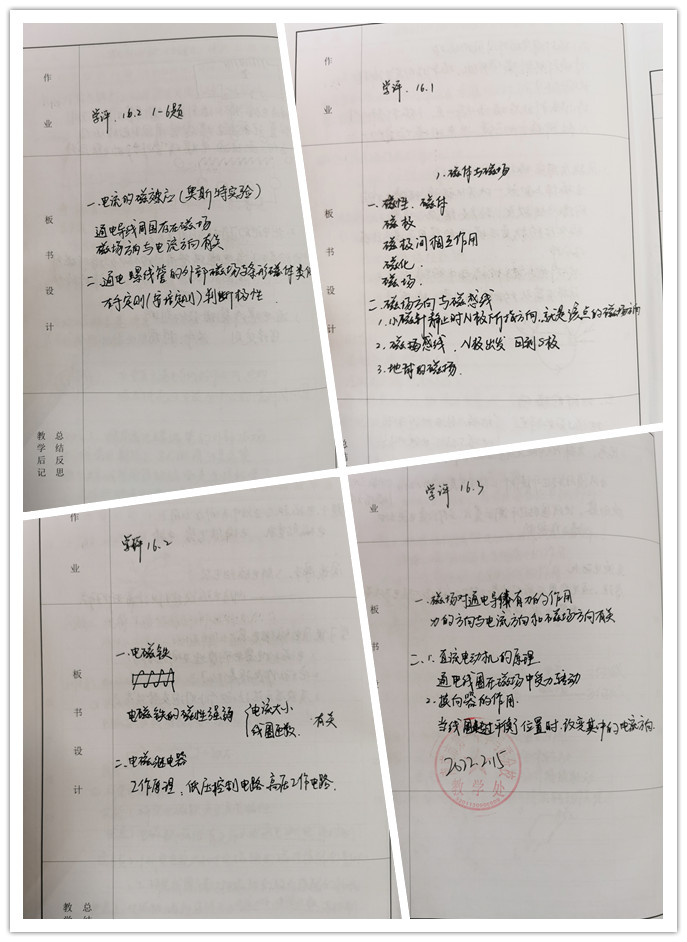 作业
学评. 16.2 1-6题
板书设计
一.电流的磁效应(奥斯特实验)
通电导线周围存在磁场
磁场方向与电流方向有关
二.通电螺线管的外部磁场与条形磁体类似
右手定则(安培定则)判断极性.
总结反思
教学后记
作业
学评. 16.1
板书设计
1.磁体与磁场
一.磁性. 磁体
磁极
磁极间相互作用
磁化.
磁场.
二.磁场方向与磁感线
1.小磁针静止时N极所指方向,就是该点的磁场方向
2.磁感线. N极出发 回到S极
3.地球的磁场.
总结
作业
学评16.2
板书设计
一.电磁铁
电磁铁的磁性强弱
电流大小
线圈匝数.
有关
二.电磁继电器
工作原理:低压控制电路.高压工作电路.
总
教学
业
学评 16.3
板书设计
一.磁场对通电导体有力的作用
力的方向与电流方向和磁场方向有关
二.1.直流电动机的原理
通电线圈在磁场中受力转动
2.换向器的作用.
当线圈越过平衡位置时.改变其中的电流方向.
2022.2.15
教学处